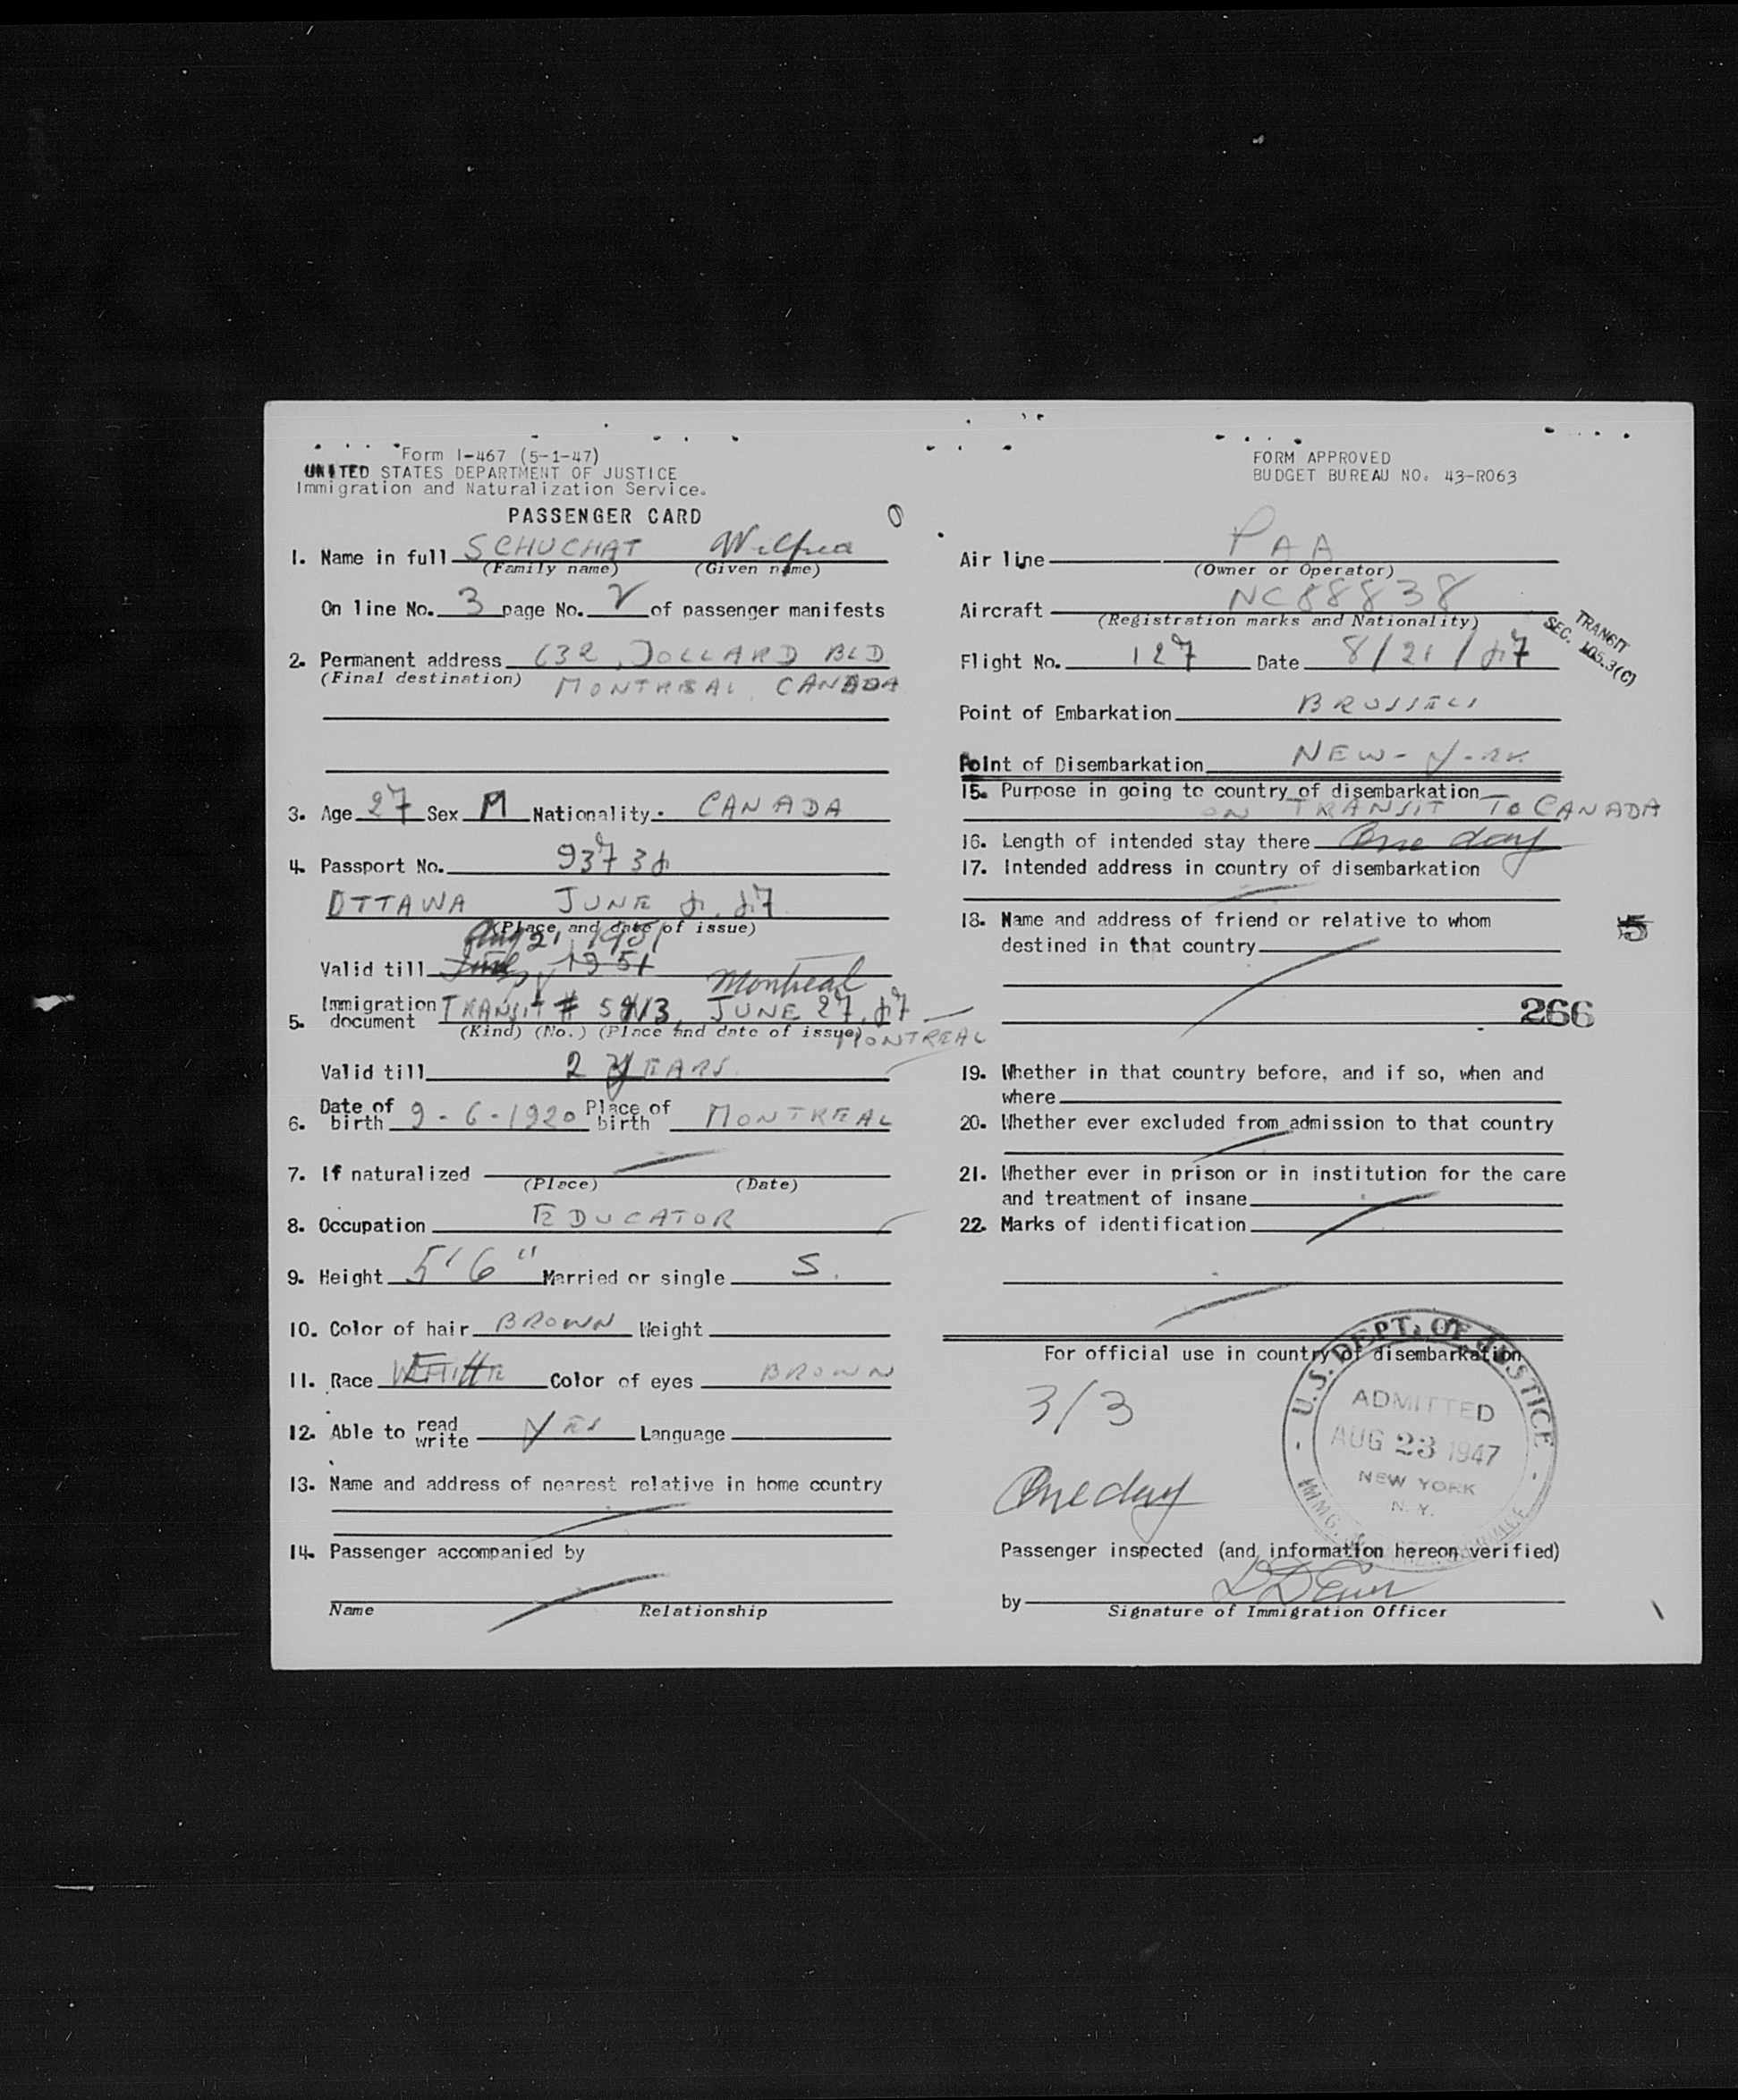 Form I-467 (5-1-47)
UNITED STATES DEPARTMENT OF JUSTICE
Immigration and Naturalization Service.
PASSENGER CARD
1. Name in full SCHUCHAT Wilfred
(Family name) (Given name)
On line No. 3 page No. 2 of passenger manifests
2. Permanent address 632, DOLLARD BLD
(Final destination) MONTREAL CANADA
3. Age 27 Sex M Nationality. CANADA
4. Passport No. 93734
OTTAWA JUNE 4. 47
(Place and date of issue)
Aug 21, 1951
Valid till 1951
Montreal
5. Immigration document TRANSIT # JUNE 27. 47
(Kind) (No.) (Place and date of issue)
MONTREAL
Valid till 2 YEARS
6. Date of birth 9-6-1920 Place of birth MONTREAL
7. If naturalized
(Place) (Date)
8. Occupation EDUCATOR
9. Height 5'6" Married or single S.
10. Color of hair BROWN Weight
11. Race WHITE Color of eyes BROWN
12. Able to read write YES Language
13. Name and address of nearest relative in home country
14. Passenger accompanied by
Name Relationship
FORM APPROVED
BUDGET BUREAU NO. 43-R063
Air line PAA
(Owner or Operator)
Aircraft NC88838
(Registration marks and Nationality)
TRANSIT
SEC. 105.3(C)
Flight No. 127 Date 8/21/47
Point of Embarkation BRUSSELS
Point of Disembarkation NEW-YORK
15. Purpose in going to country of disembarkation
ON TRANSIT TO CANADA
16. Length of intended stay there One day
17. Intended address in country of disembarkation
18. Name and address of friend or relative to whom
destined in that country
5
266
19. Whether in that country before, and if so, when and
where
20. Whether ever excluded from admission to that country
21. Whether ever in prison or in institution for the care
and treatment of insane
22. Marks of identification
For official use in country of disembarkation
3/3
One day
U.S. DEPT. OF JUSTICE
ADMITTED
AUG 23 1947
NEW YORK
N. Y.
IMMG.
Passenger inspected (and information hereon verified)
by
Signature of Immigration Officer